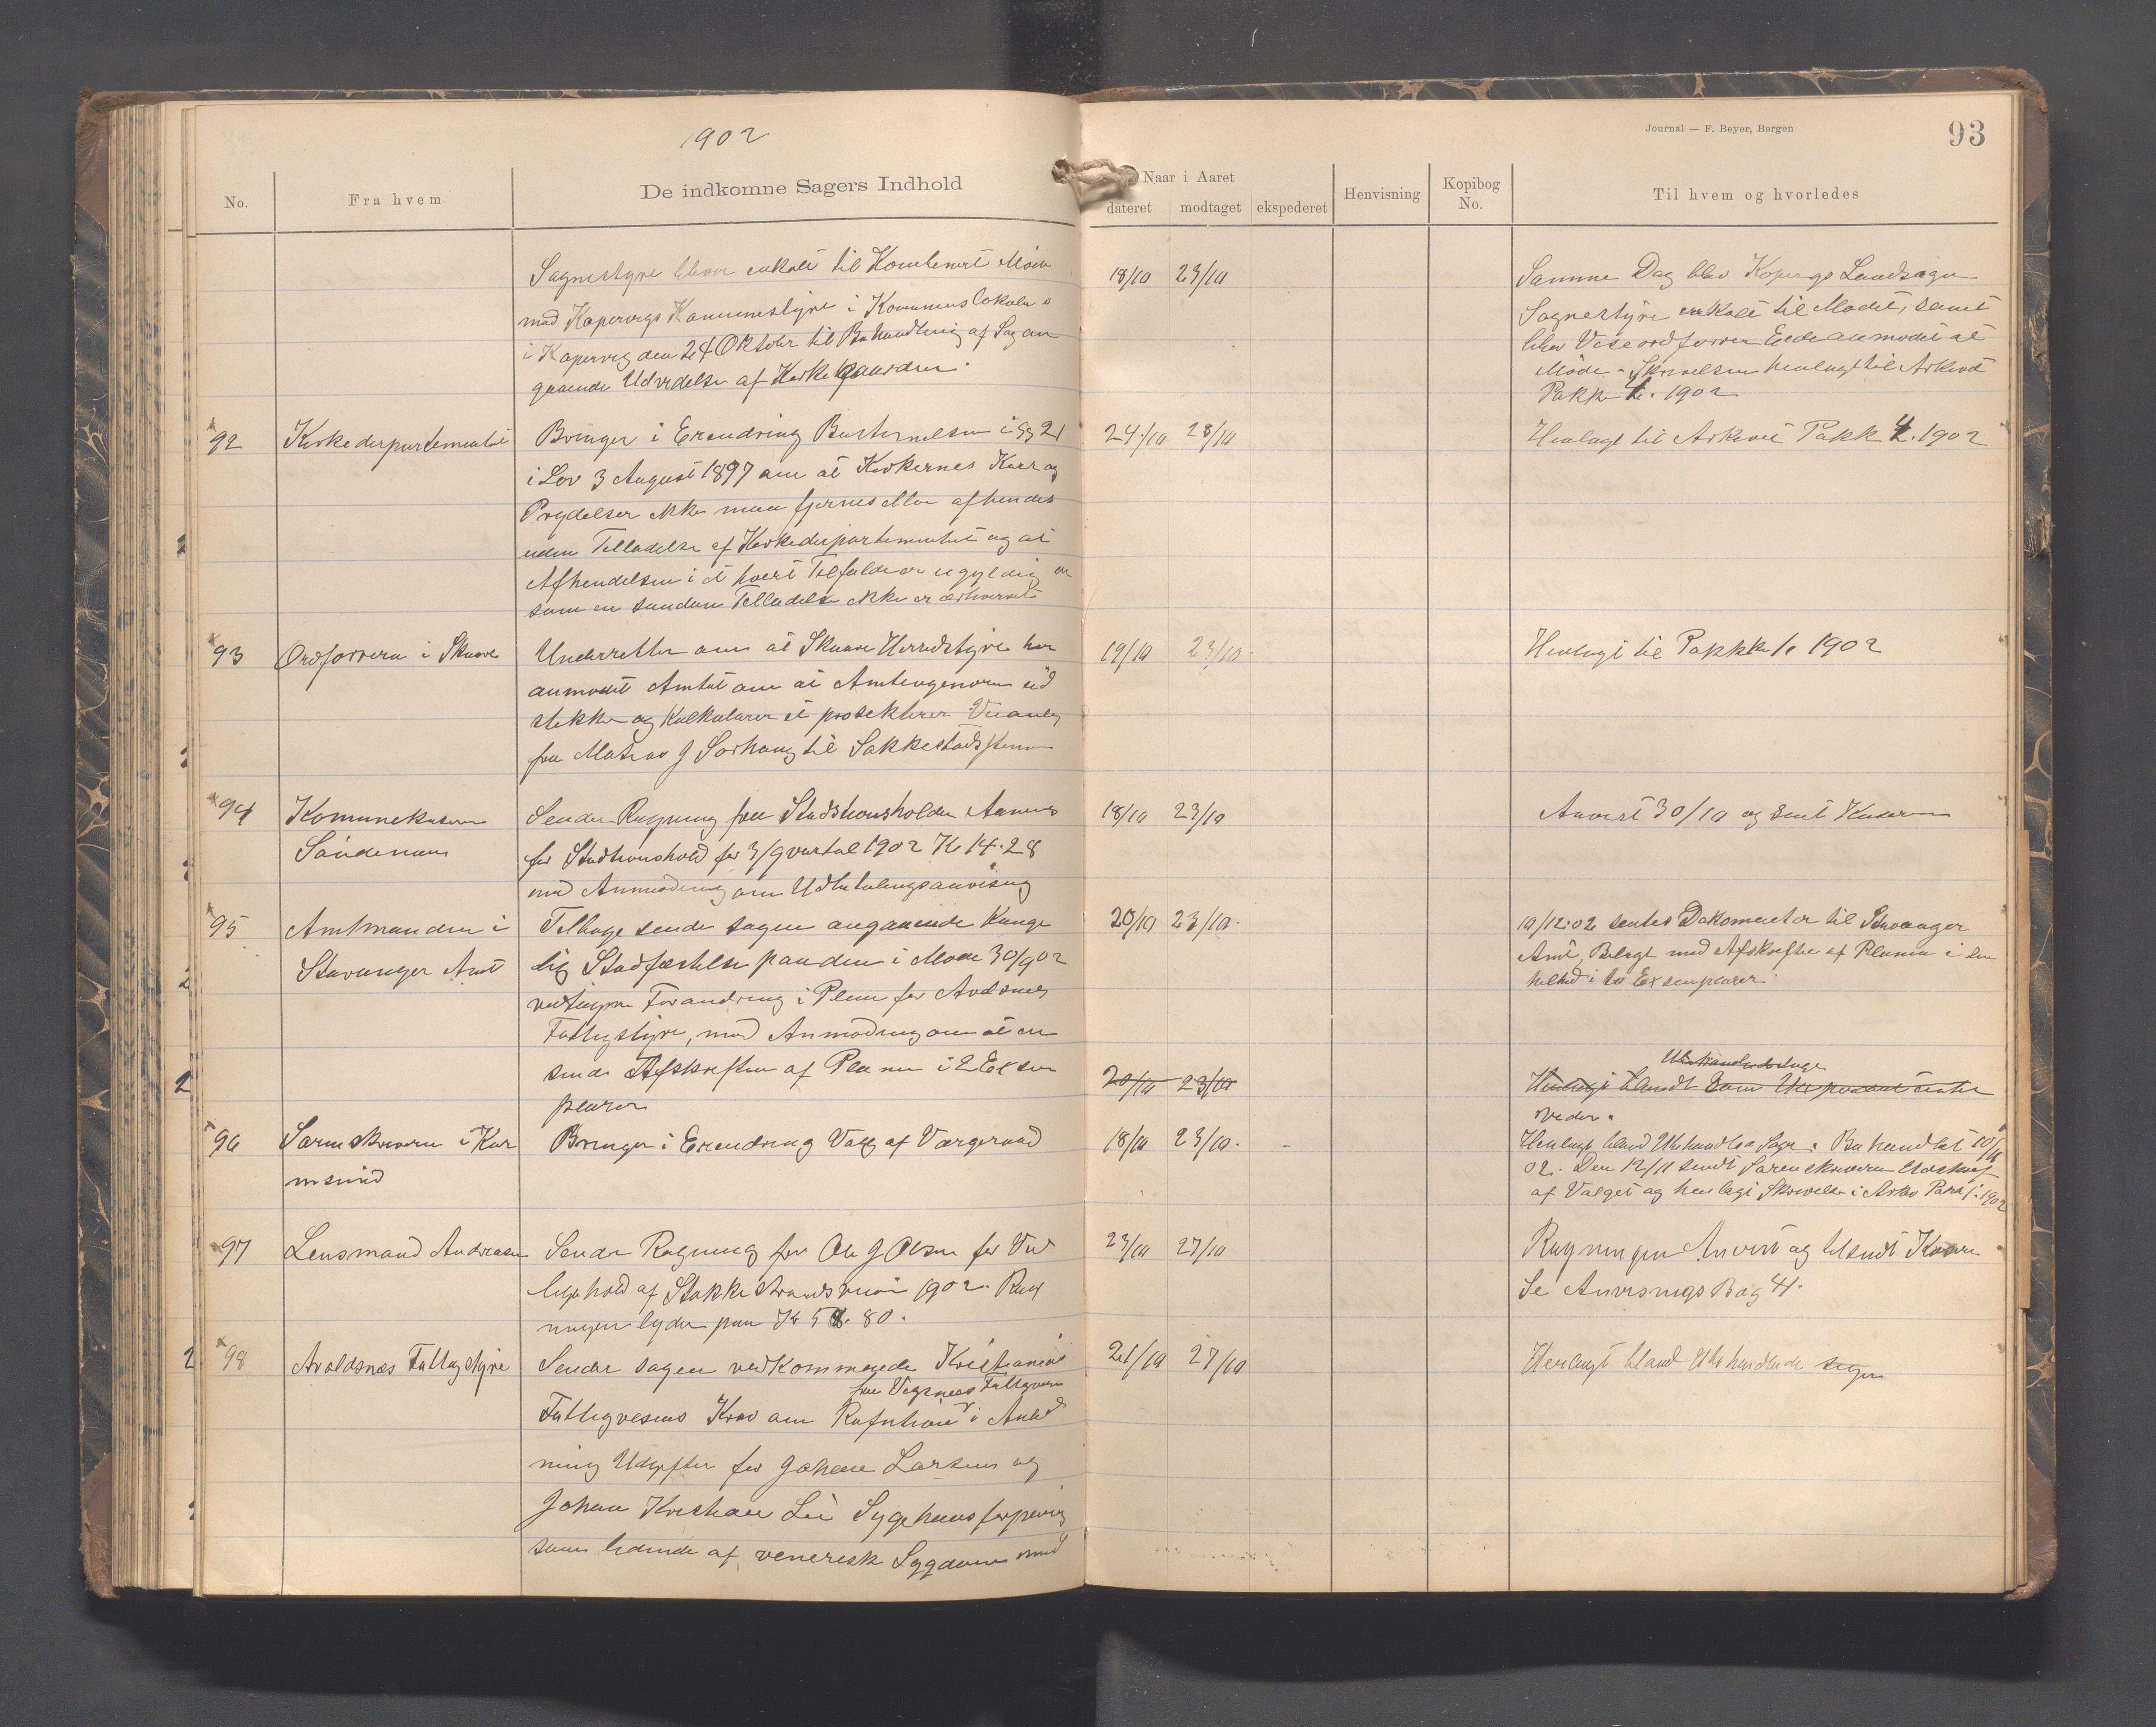 902
Journal — F. Beyer, Bergen
93
No.
Fra hvem
De indkomne Sagers Indhold
Naar i Aaret
dateret
modtaget
ekspederet
Henvisning
Kopibog No.
Til hvem og hvorledes
Sognestyre blever enkalt til Kombenert Möde
med Kopervigs Kommunestyre i Kommunelokale
i Kopervig den 24 Oktober til Behandling af Sag an
gaaende Udvidelse af Kirkegaarden.
18/10 23/10
Samme Dag blev Kopervigs Landsogn
Sognestyre enkalt til Mødet, samt
blev Viseordfører Eide anmodet at
Möde. Skrivelsen henlagt til Arkivet
Pakke 1. 1902
92 Kirkedepartementet
Bringer i Erendring Bestemelsen i § 21
i Lov 3 August 1897 om at Kirkernes Kar og
Prydelser ikke maa fjernes eller afhendes
uden Telladelse af Kirkedepartementet og at
Afhendelsen i et hvert Telfælde er ugyldig
som en saadan Telladelse ikke er erhvervet
24/10 28/10
Henlagt til Arkivet Pakk 4. 1902
93 Ordförern i Skaare
Underretter om at Skaare Herredstyre har
anmodet Amtet om at Amtengeniøren ud
stikker og Kalkulerer et prosekterer Veianlæg
fra Matros J Sørhaug til Sakkestadskeren
19/10 23/10
Henlagt til Pakkke 1 1902
94 Kommunekaserer
Sändenaa
Sender Regning fra Stadshonsholder Aanes
for Stadhonshold for 3/9 vartal 1902 Kr 14.28
med Anmodning om Udbetalingsanvisng
18/10 23/10
Anvist 30/10 og sent Kaseren
95 Amtmanden i
Stavanger Amt
Telbage sender sagen angaaende Konge
lig Stadfæstelse paa den i Møde 30/9 02
vedtagne Forandring i Plan for Avdsnes
Fattigstyre, med Anmodning om at en
sende Afskreften af Planen i 2 Eksem
plarer
20/10 23/10.
10/12.02 sentes Dokomenter til Stavanger
Amt, Belagt med Afskrefter af Planen i sin
helhed i to Exsemplarer.
20/10 23/10
Ubehandlede Sage
Henlagt blandt
veder.
96 Sorenskriveren i Kar
msund
Bringer i Erendring Valg af Værgeraad
18/10 23/10. -
Henlagt bland Ubehandlea Sage. Behandlet 10/11
02. Den 12/11 sendt Sorenskriveren Udskrift
af Valget og henlagt Skrivelse i Arkiv Pakk 1. 1902
97 Lensmand Andreasen
Sender Regning fra Ole J Olsen for Ved
ligehold af Stakkestrandsveien 1902. Reg
ningen lyder paa Kr 58.80.
23/10 27/10
Regningen Anvist og tilsendt Kaseren
Se Anvisnigs Bog 4.
98 Avaldsnæs Fattigstyre
Sender sagen vedkommende Kristiania
fra Vegsnees Fattigvesen
Fattigvesens Krav om Refution i Anled
ning Udgifter for Johan Larsens og
Johan Kristian Sei Sygehusforpleinig
som ledende af venerisk Sygdom med
21/10 27/10
Henlagt bland Ubehandlede sager